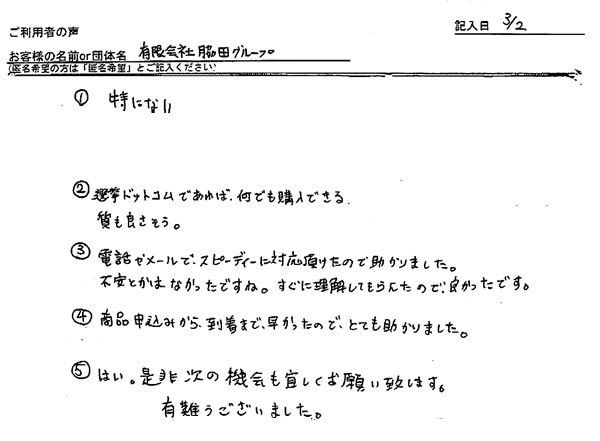 ご利用者の声
記入日 3/2
お客様の名前or団体名 有限会社脇田グループ
(匿名希望の方は「匿名希望」とご記入ください)
① 特にない
② 選挙ドットコムであれば、何でも購入できる。
質も良さそう。
③ 電話やメールで、スピーディーに対応頂けたので助かりました。
不安とかはなかったですね。すぐに理解してもらえたので、良かったです。
④ 商品申込みから、到着まで、早かったので、とても助かりました。
⑤ はい。是非次の機会も宜しくお願い致します。
有難うございました。